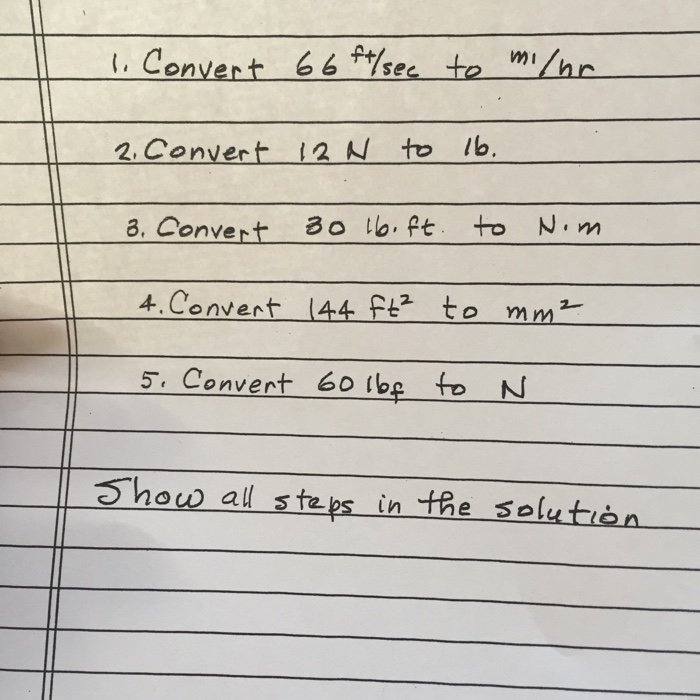 1. Convert 66 ft/sec to mi/hr
2. Convert 12 N to lb.
3. Convert 30 lb.ft. to N.m
4. Convert 144 ft² to mm²
5. Convert 60 lbf to N
Show all steps in the solution